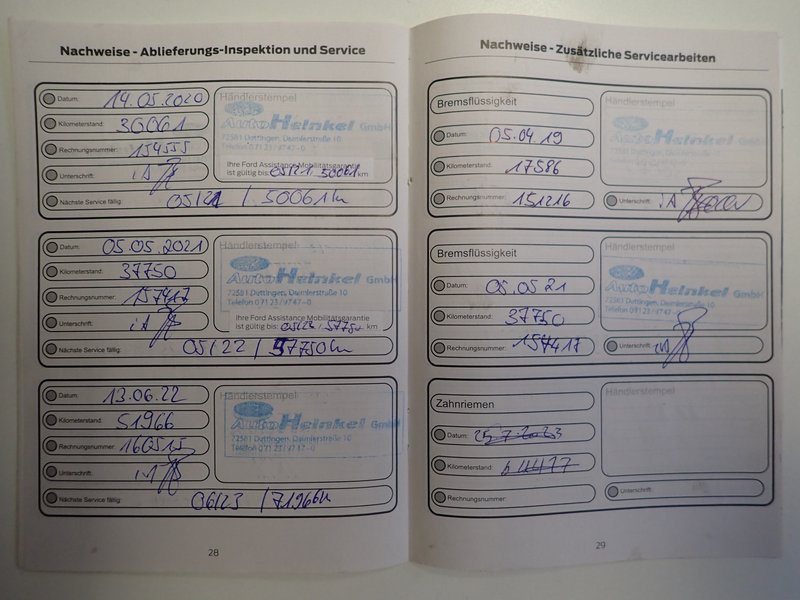 Nachweise - Ablieferungs-Inspektion und Service
Datum: 14.05.2020
Händlerstempel
Kilometerstand: 30061
Auto Heinkel GmbH
Rechnungsnummer: 154555
72581 Dettingen, Daimlerstraße 10
Telefon 07123/9747-0
Unterschrift: iA
Ihre Ford Assistance Mobilitätsgarantie
ist gültig bis: 05/21 / 50061 km
Nächste Service fällig: 05/21 / 50061 km
Datum: 05.05.2021
Händlerstempel
Kilometerstand: 37750
Auto Heinkel GmbH
Rechnungsnummer: 157417
72581 Dettingen, Daimlerstraße 10
Telefon 07123/9747-0
Unterschrift: iA
Ihre Ford Assistance Mobilitätsgarantie
ist gültig bis: 05/23 / 57750 km
Nächste Service fällig: 05/22 / 57750 km
Datum: 13.06.22
Händlerstempel
Kilometerstand: 51966
Auto Heinkel GmbH
Rechnungsnummer: 160515
72581 Dettingen, Daimlerstraße 10
Telefon 07123/9747-0
Unterschrift: iA
Nächste Service fällig: 06/23 / 71966 km
28
Nachweise - Zusätzliche Servicearbeiten
Bremsflüssigkeit
Händlerstempel
Datum: 05.04.19
Auto Heinkel GmbH
72581 Dettingen, Daimlerstraße 10
Telefon 07123/9747-0
Kilometerstand: 17586
Rechnungsnummer: 151216
Unterschrift: iA
Bremsflüssigkeit
Händlerstempel
Datum: 05.05.21
Auto Heinkel GmbH
72581 Dettingen, Daimlerstraße 10
Telefon 07123/9747-0
Kilometerstand: 37750
Rechnungsnummer: 157417
Unterschrift: iA
Zahnriemen
Händlerstempel
Datum: 25.7.2023
Kilometerstand: 64477
Rechnungsnummer:
Unterschrift:
29